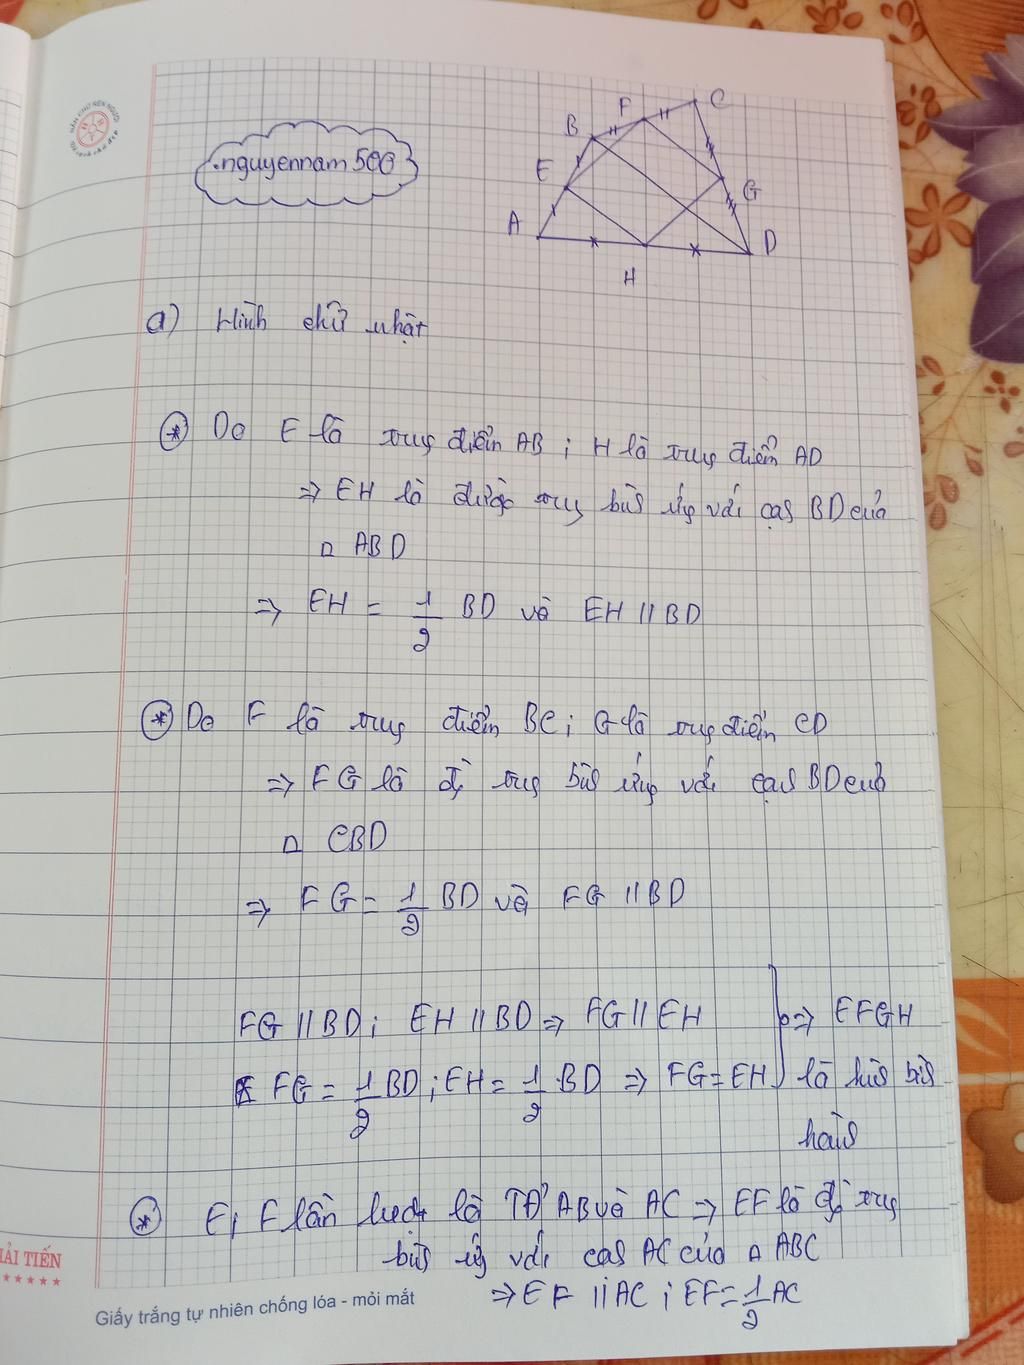 F C
B
E G
A D
H
nguyennam500
a) Hình chữ nhật
* Do E là trung điểm AB ; H là trung điểm AD
⇒ EH là đường trung bình ứng với cạnh BD của
Δ ABD
⇒ EH = 1/2 BD và EH // BD
* Do F là trung điểm BC ; G là trung điểm CD
⇒ FG là đg trung bình ứng với cạnh BD của
Δ CBD
⇒ FG = 1/2 BD và FG // BD
FG // BD ; EH // BD ⇒ FG // EH } ⇒ EFGH
FG = 1/2 BD ; EH = 1/2 BD ⇒ FG = EH là hình bình
hành
* E, F lần lượt là TĐ AB và AC ⇒ EF là đg trung
bình ứng với cạnh AC của Δ ABC
⇒ EF // AC ; EF = 1/2 AC
ẢI TIẾN
Giấy trắng tự nhiên chống lóa - mỏi mắt